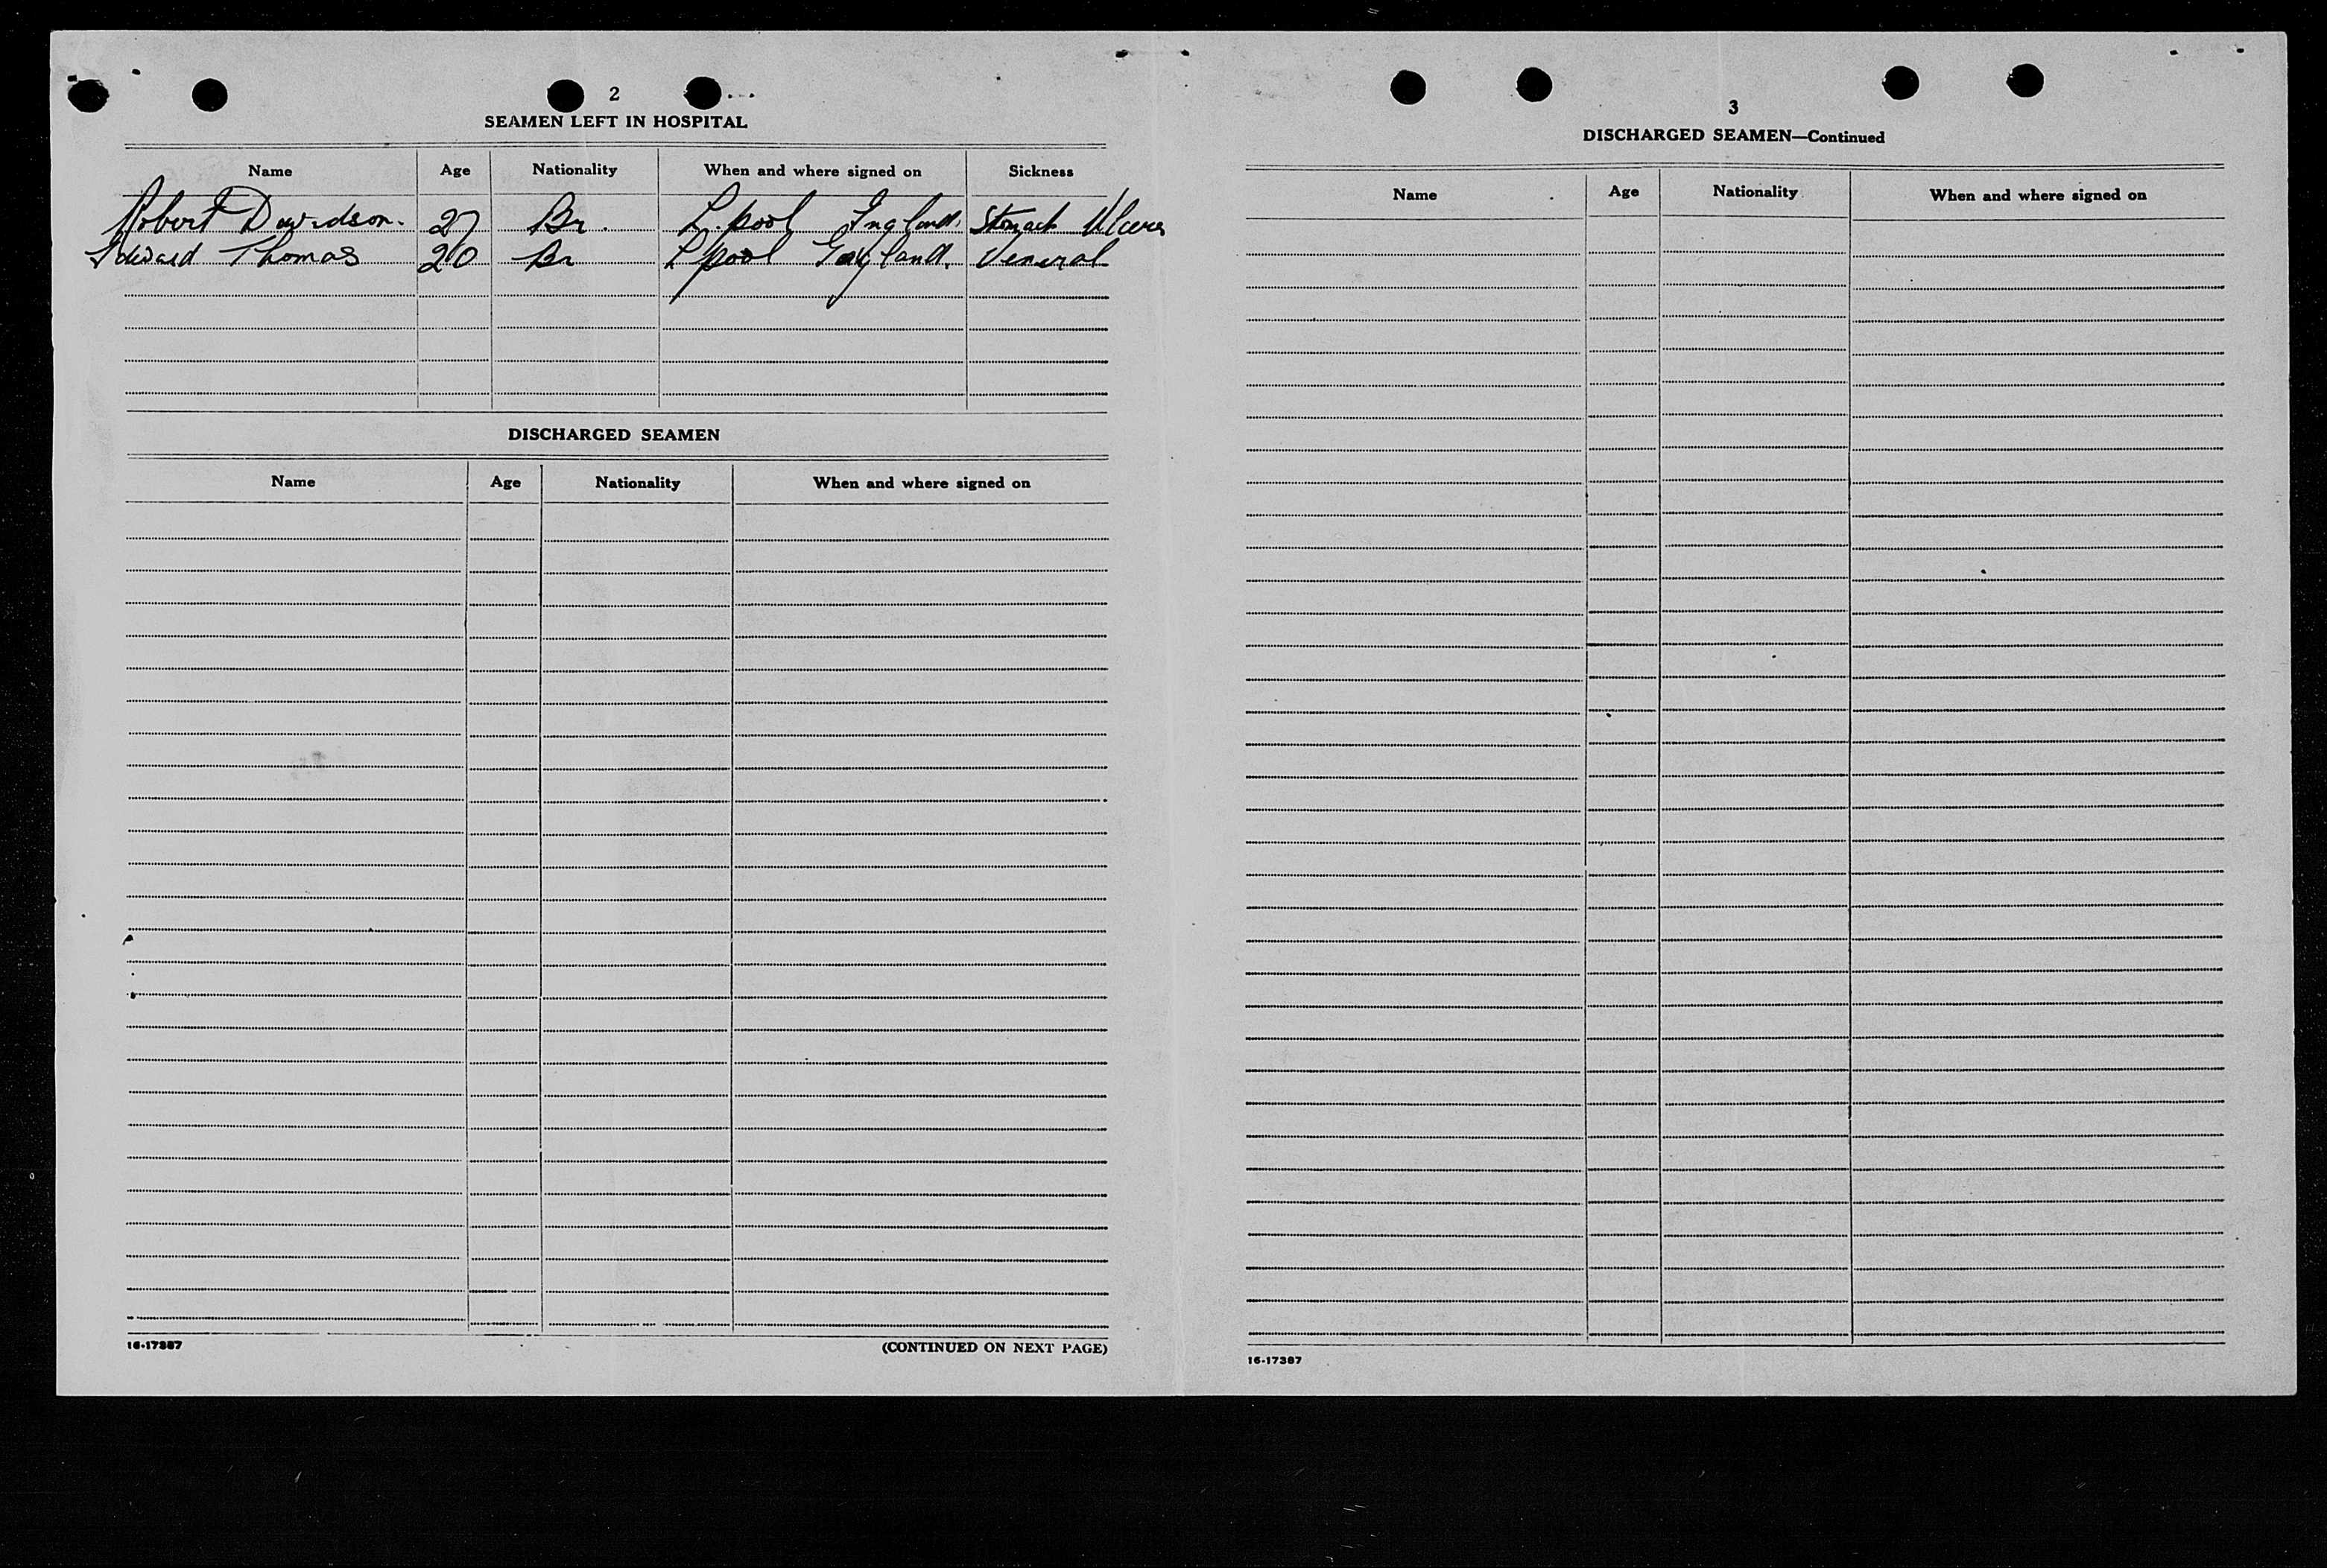 2
SEAMEN LEFT IN HOSPITAL
Name Age Nationality When and where signed on Sickness
Robert Davidson. 27 Br. L.pool England. Stomach Ulcers
Edward Thomas 20 Br L'pool England. Veneral
DISCHARGED SEAMEN
Name Age Nationality When and where signed on
16-17387 (CONTINUED ON NEXT PAGE)
3
DISCHARGED SEAMEN—Continued
Name Age Nationality When and where signed on
16-17387